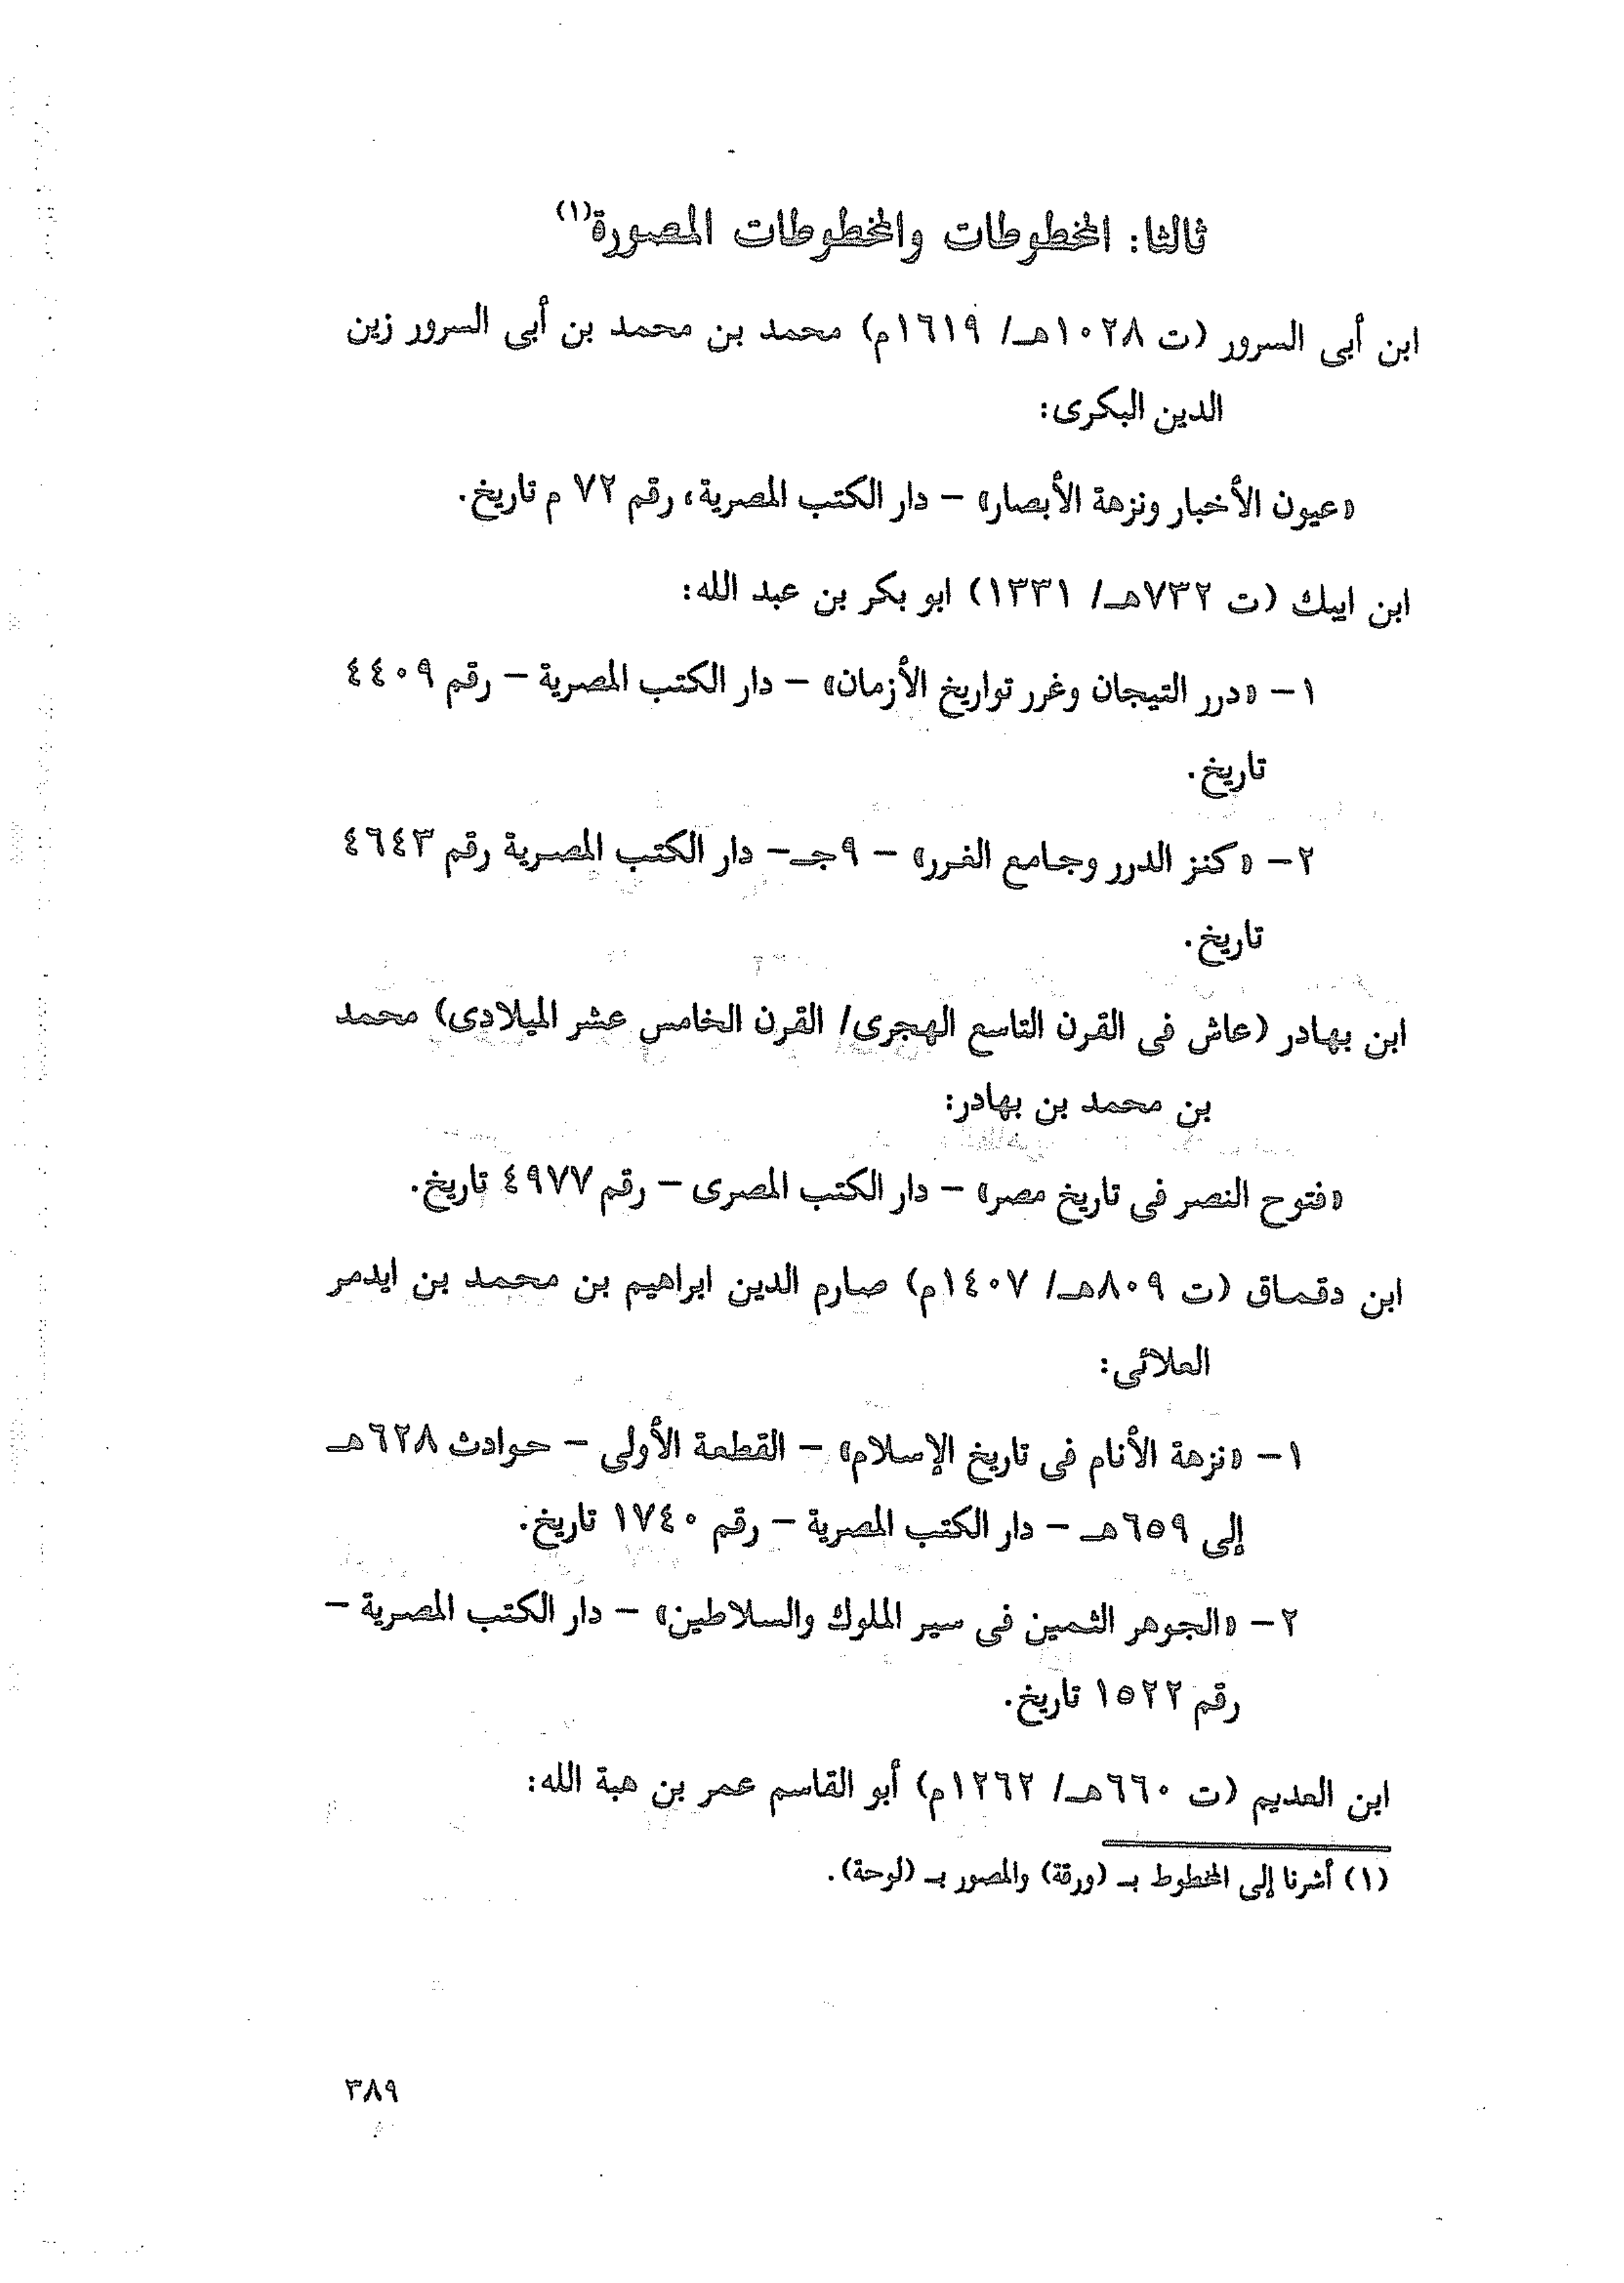 ثالثا: المخطوطات والمخطوطات المصورة(١)
ابن أبى السرور (ت ١٠٢٨هـ/ ١٦١٩م) محمد بن محمد بن أبى السرور زين
الدين البكرى:
«عيون الأخبار ونزهة الأبصار» – دار الكتب المصرية، رقم ٧٢ م تاريخ.
ابن ايبك (ت ٧٣٢هـ/ ١٣٣١) ابو بكر بن عبد الله:
١– «درر التيجان وغرر تواريخ الأزمان» – دار الكتب المصرية – رقم ٤٤٠٩
تاريخ.
٢– «كنز الدرر وجامع الغرر» – ٩جـ– دار الكتب المصرية رقم ٤٦٤٣
تاريخ.
ابن بهادر (عاش فى القرن التاسع الهجرى/ القرن الخامس عشر الميلادى) محمد
بن محمد بن بهادر:
«فتوح النصر فى تاريخ مصر» – دار الكتب المصرى – رقم ٤٩٧٧ تاريخ.
ابن دقماق (ت ٨٠٩هـ/ ١٤٠٧م) صارم الدين ابراهيم بن محمد بن ايدمر
العلائى:
١– «نزهة الأنام فى تاريخ الإسلام» – القطعة الأولى – حوادث ٦٢٨هـ
إلى ٦٥٩هـ – دار الكتب المصرية – رقم ١٧٤٠ تاريخ.
٢– «الجوهر الثمين فى سير الملوك والسلاطين» – دار الكتب المصرية –
رقم ١٥٢٢ تاريخ.
ابن العديم (ت ٦٦٠هـ/ ١٢٦٢م) أبو القاسم عمر بن هبة الله:
(١) أشرنا إلى المخطوط بـ (ورقة) والمصور بـ (لوحة).
٣٨٩